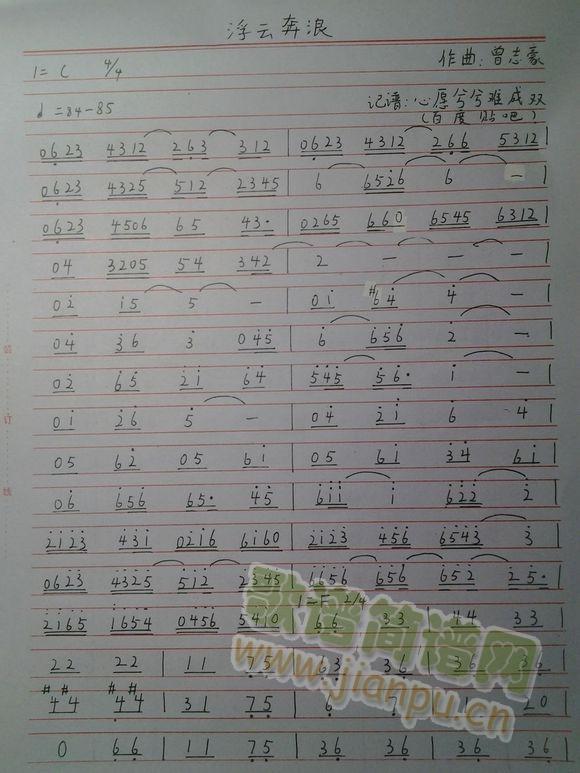 浮云奔浪
1= C 4/4 作曲:曾志豪
♩=84-85 记谱:心愿兮兮难成双
(百度贴吧)
0623 4312 263 312 | 0623 4312 266 5312 |
0623 4325 512 2345 | 6 6526 6 — |
0623 4506 65 43· | 0265 660 6545 6312 |
04 3205 54 342 | 2 — — — |
02 15 5 — | 01 #64 4 — |
04 36 3 045 | 6 656 2 — |
02 65 21 64 | 545 56· 1 — |
01 26 5 — | 04 21 6 4 |
05 62 05 61 | 05 61 34 61 |
06 656 65· 45 | 611 1 622 2 |
2123 431 0216 6160 | 2123 456 6543 3 |
0623 4325 512 2345 | 6656 656 652 25· |
1=F 2/4
2165 1654 0456 5410 | 66 33 | 44 33 |
22 22 | 11 75 | 63 36 | 36 36 |
#4#4 #4#4 | 31 75 | 6 7 | 20 |
0 66 | 11 75 | 36 36 | 36 36 |
装
订
线
歌谱简谱网
www.jianpu.cn